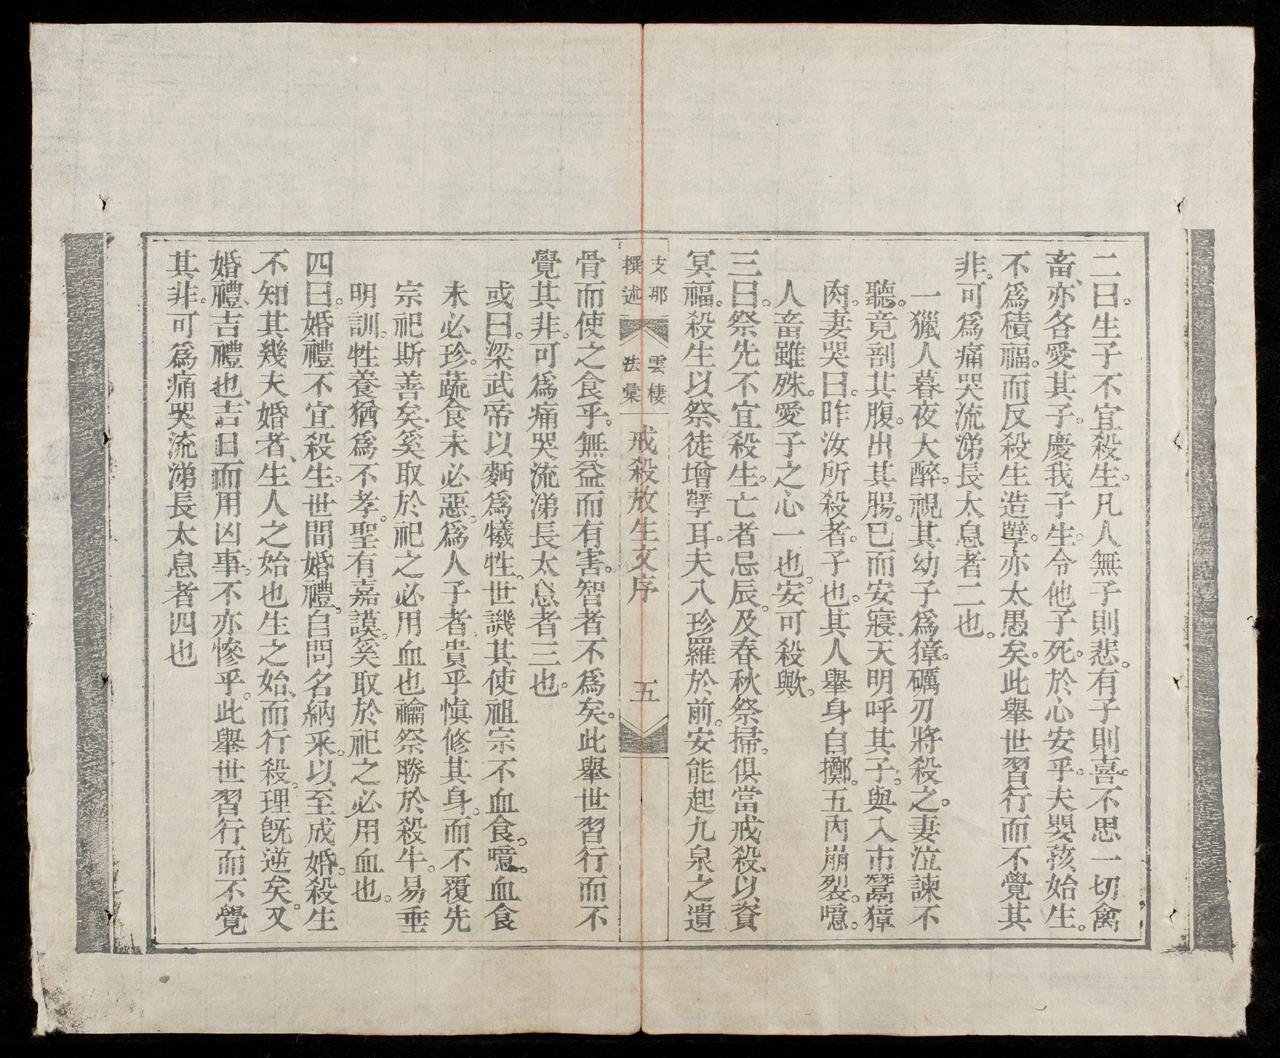 二曰。生子不宜殺生。凡人無子則悲。有子則喜。不思一切禽
畜、亦各愛其子。慶我子生。令他子死。於心安乎。夫嬰孩始生。
不爲積福。而反殺生造孽。亦太愚矣。此舉世習行而不覺其
非、可爲痛哭流涕長太息者二也。
一獵人暮夜大醉。視其幼子爲獐。礪刃將殺之。妻泣諫不
聽。竟剖其腹。出其腸。已而安寢。天明呼其子。與入市鬻獐
肉。妻哭曰。昨汝所殺者。子也。其人舉身自擲。五內崩裂。噫。
人畜雖殊。愛子之心一也。安可殺歟。
三曰。祭先不宜殺生。亡者忌辰。及春秋祭掃。俱當戒殺、以資
冥福。殺生以祭、徒增孽耳。夫八珍羅於前。安能起九泉之遺
支那
撰述
雲棲
法彙
戒殺放生文序
五
骨而使之食乎。無益而有害。智者不爲矣。此舉世習行而不
覺其非。可爲痛哭流涕長太息者三也。
或曰。梁武帝以麪爲犧牲。世譏其使祖宗不血食。噫。血食
未必珍。蔬食未必惡。爲人子者。貴乎慎修其身。而不覆先
宗祀斯善矣。奚取於祀之必用血也。禴祭勝於殺牛。易垂
明訓。牲養猶爲不孝。聖有嘉謨。奚取於祀之必用血也。
四曰。婚禮不宜殺生。世間婚禮。自問名納采。以至成婚。殺生
不知其幾。夫婚者、生人之始也。生之始、而行殺。理旣逆矣。又
婚禮、吉禮也。吉日而用凶事。不亦慘乎。此舉世習行而不覺
其非。可爲痛哭流涕長太息者四也